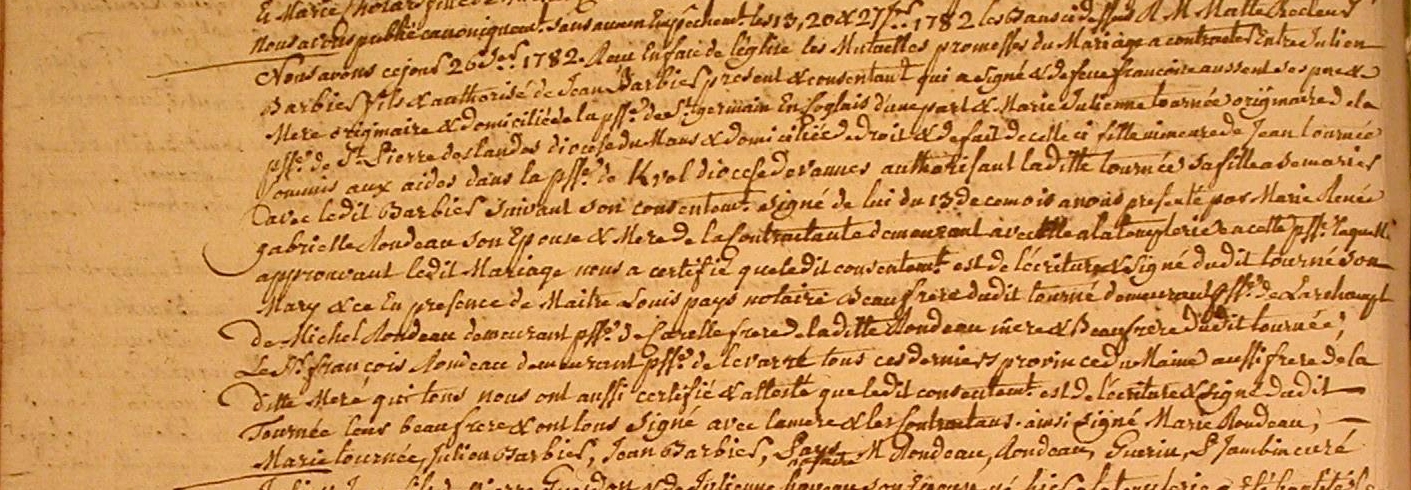 Et Marie
nous avons publié canoniquemt. sans aucun Empechemt. les 13, 20 & 27 1782 les Bans ci dessus R. M. Matte Recteur
Nous avons ce jour 26 1782. Recu En face de l'église les Mutuelles promesses du Mariage a contractes Entre Julien
Barbier fils & authorisé de Jean Barbier present & consentant qui a signé & de feue françoise aussent ses pere &
Mere originaire & domicilié de la psse. de St. germain En Coglais d'une part & Marie Julienne tournée originaire de la
psse. de St. Pierre des landes diocese du Mans & domiciliée de droit & de fait de celle ci fille mineure de Jean tournée
commis aux aides dans la psse. de Kvel diocese de vannes authorisant la ditte tournée sa fille a se marier
avec le dit Barbier suivant son consentemt. signé de lui du 13 de ce mois a nous presenté par Marie Renée
gabrielle Rondeau son Epouse & Mere de la Contractante demeurant avec elle a la templerie en cette psse. laquelle
approuvant le dit Mariage nous a certifié que le dit consentemt. est de l'écriture & signé du dit tourné son
Mary & ce En presence de Maitre Louis pays notaire Beaufrere du dit tourné demeurant psse. de Larchampt
De Michel Rondeau demeurant psse. de Carelle frere de la ditte Rondeau mere & Beaufrere du dit tournée,
Le Sr. françois Rondeau demeurant psse. de levarré tous ces derniers province du Maine aussi frere de la
ditte Mere qui tous nous ont aussi certifié & attesté que le dit consentemt. est de l'écriture & signé du dit
Tournée leur beaufrere & ont tous signé avec la mere & les Contractans. ainsi signé Marie Rondeau,
Marie tournée, Julien Barbier, Jean Barbier, Pays notaire M Rondeau, Rondeau, Guerin, P Jambin curé